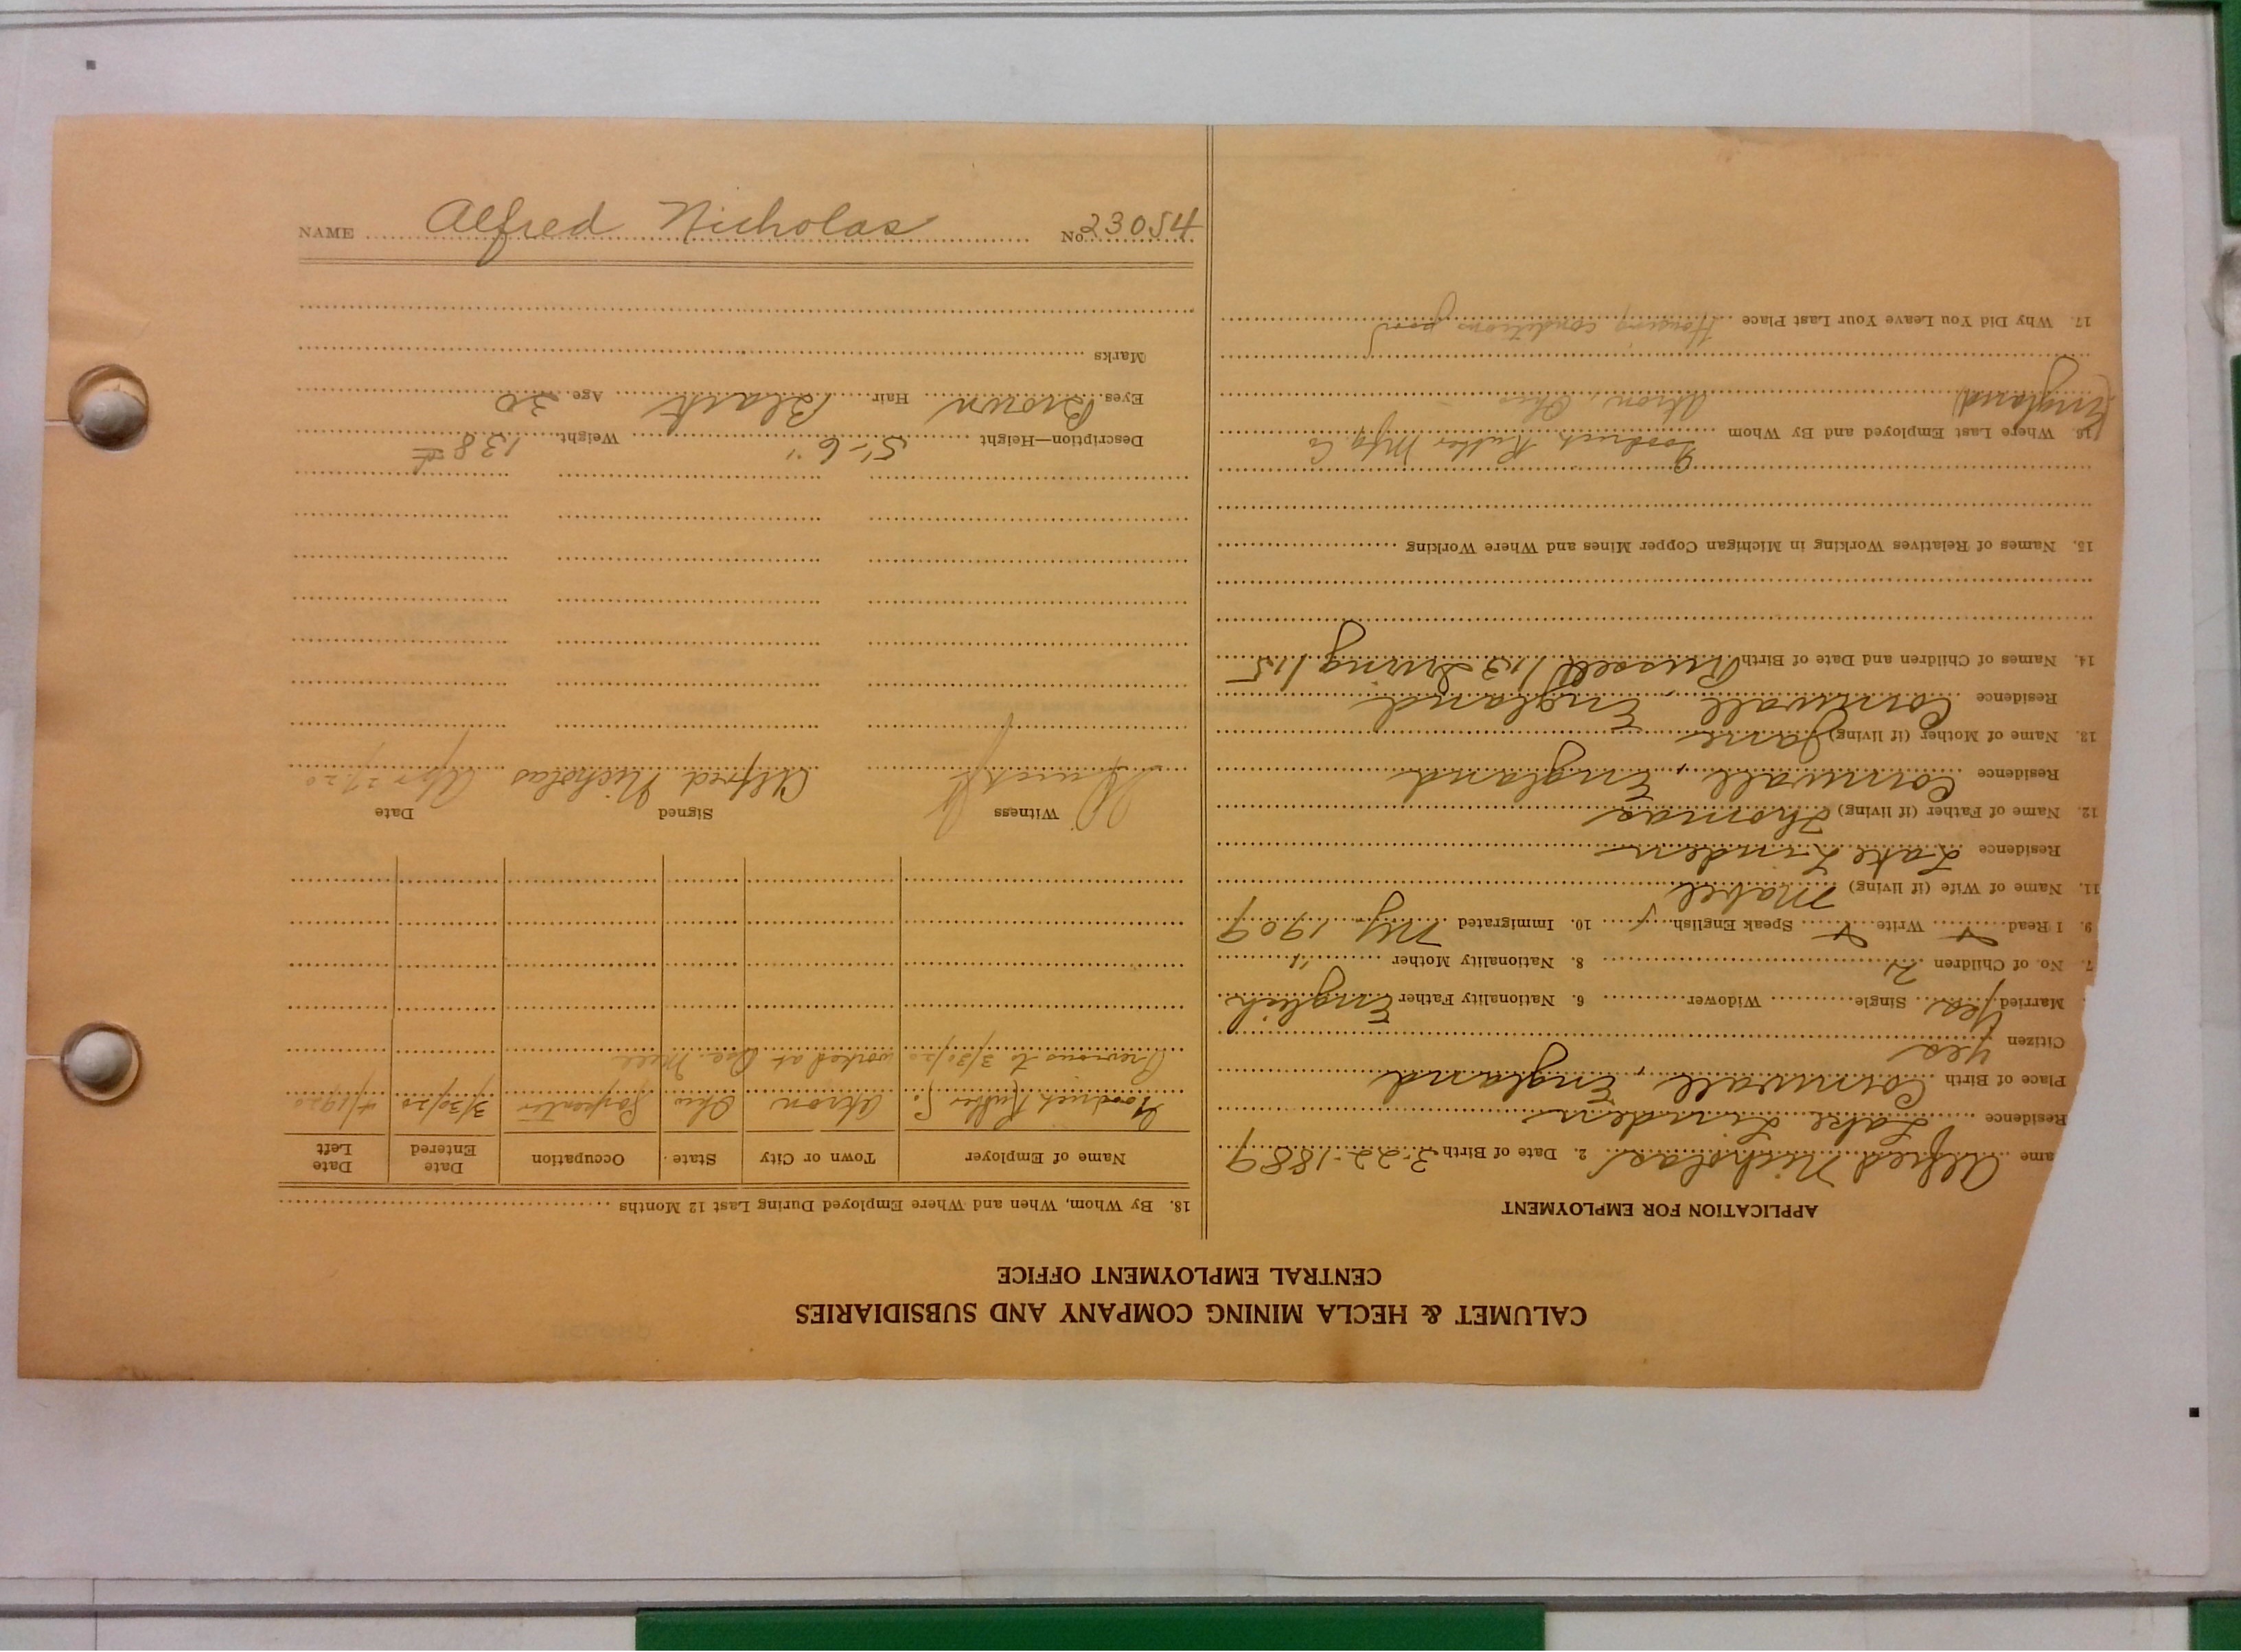 NAME Alfred Nicholas No. 23054
CALUMET & HECLA MINING COMPANY AND SUBSIDIARIES
CENTRAL EMPLOYMENT OFFICE
APPLICATION FOR EMPLOYMENT
ame Alfred Nicholas 2. Date of Birth 3-22-1889
Residence Lake Linden
Place of Birth Cornwall, England
Citizen yes
Married yes Single Widower 6. Nationality Father English
7. No. of Children 2 8. Nationality Mother "
9. I Read Write Speak English 10. Immigrated NY 1909
11. Name of Wife (if living) Mabel
Residence Lake Linden
12. Name of Father (if living) Thomas
Residence Cornwall, England
13. Name of Mother (if living) Jane
Residence Cornwall, England
14. Names of Children and Date of Birth Russell 1/13 Irving 1/15
15. Names of Relatives Working in Michigan Copper Mines and Where Working
16. Where Last Employed and By Whom Goodrich Rubber Mfg Co
(England) Akron, Ohio
17. Why Did You Leave Your Last Place Housing conditions poor
18. By Whom, When and Where Employed During Last 12 Months
Name of Employer Town or City State Occupation Date Entered Date Left
Goodrich Rubber Co. Akron Ohio Carpenter 3/30/20 4/19/20
Previous to 3/30/20 worked at Mill
Witness Signed Date
Alfred Nicholas Apr 27-20
Description—Height 5'-6" Weight 138
Eyes Brown Hair Black Age 30
Marks